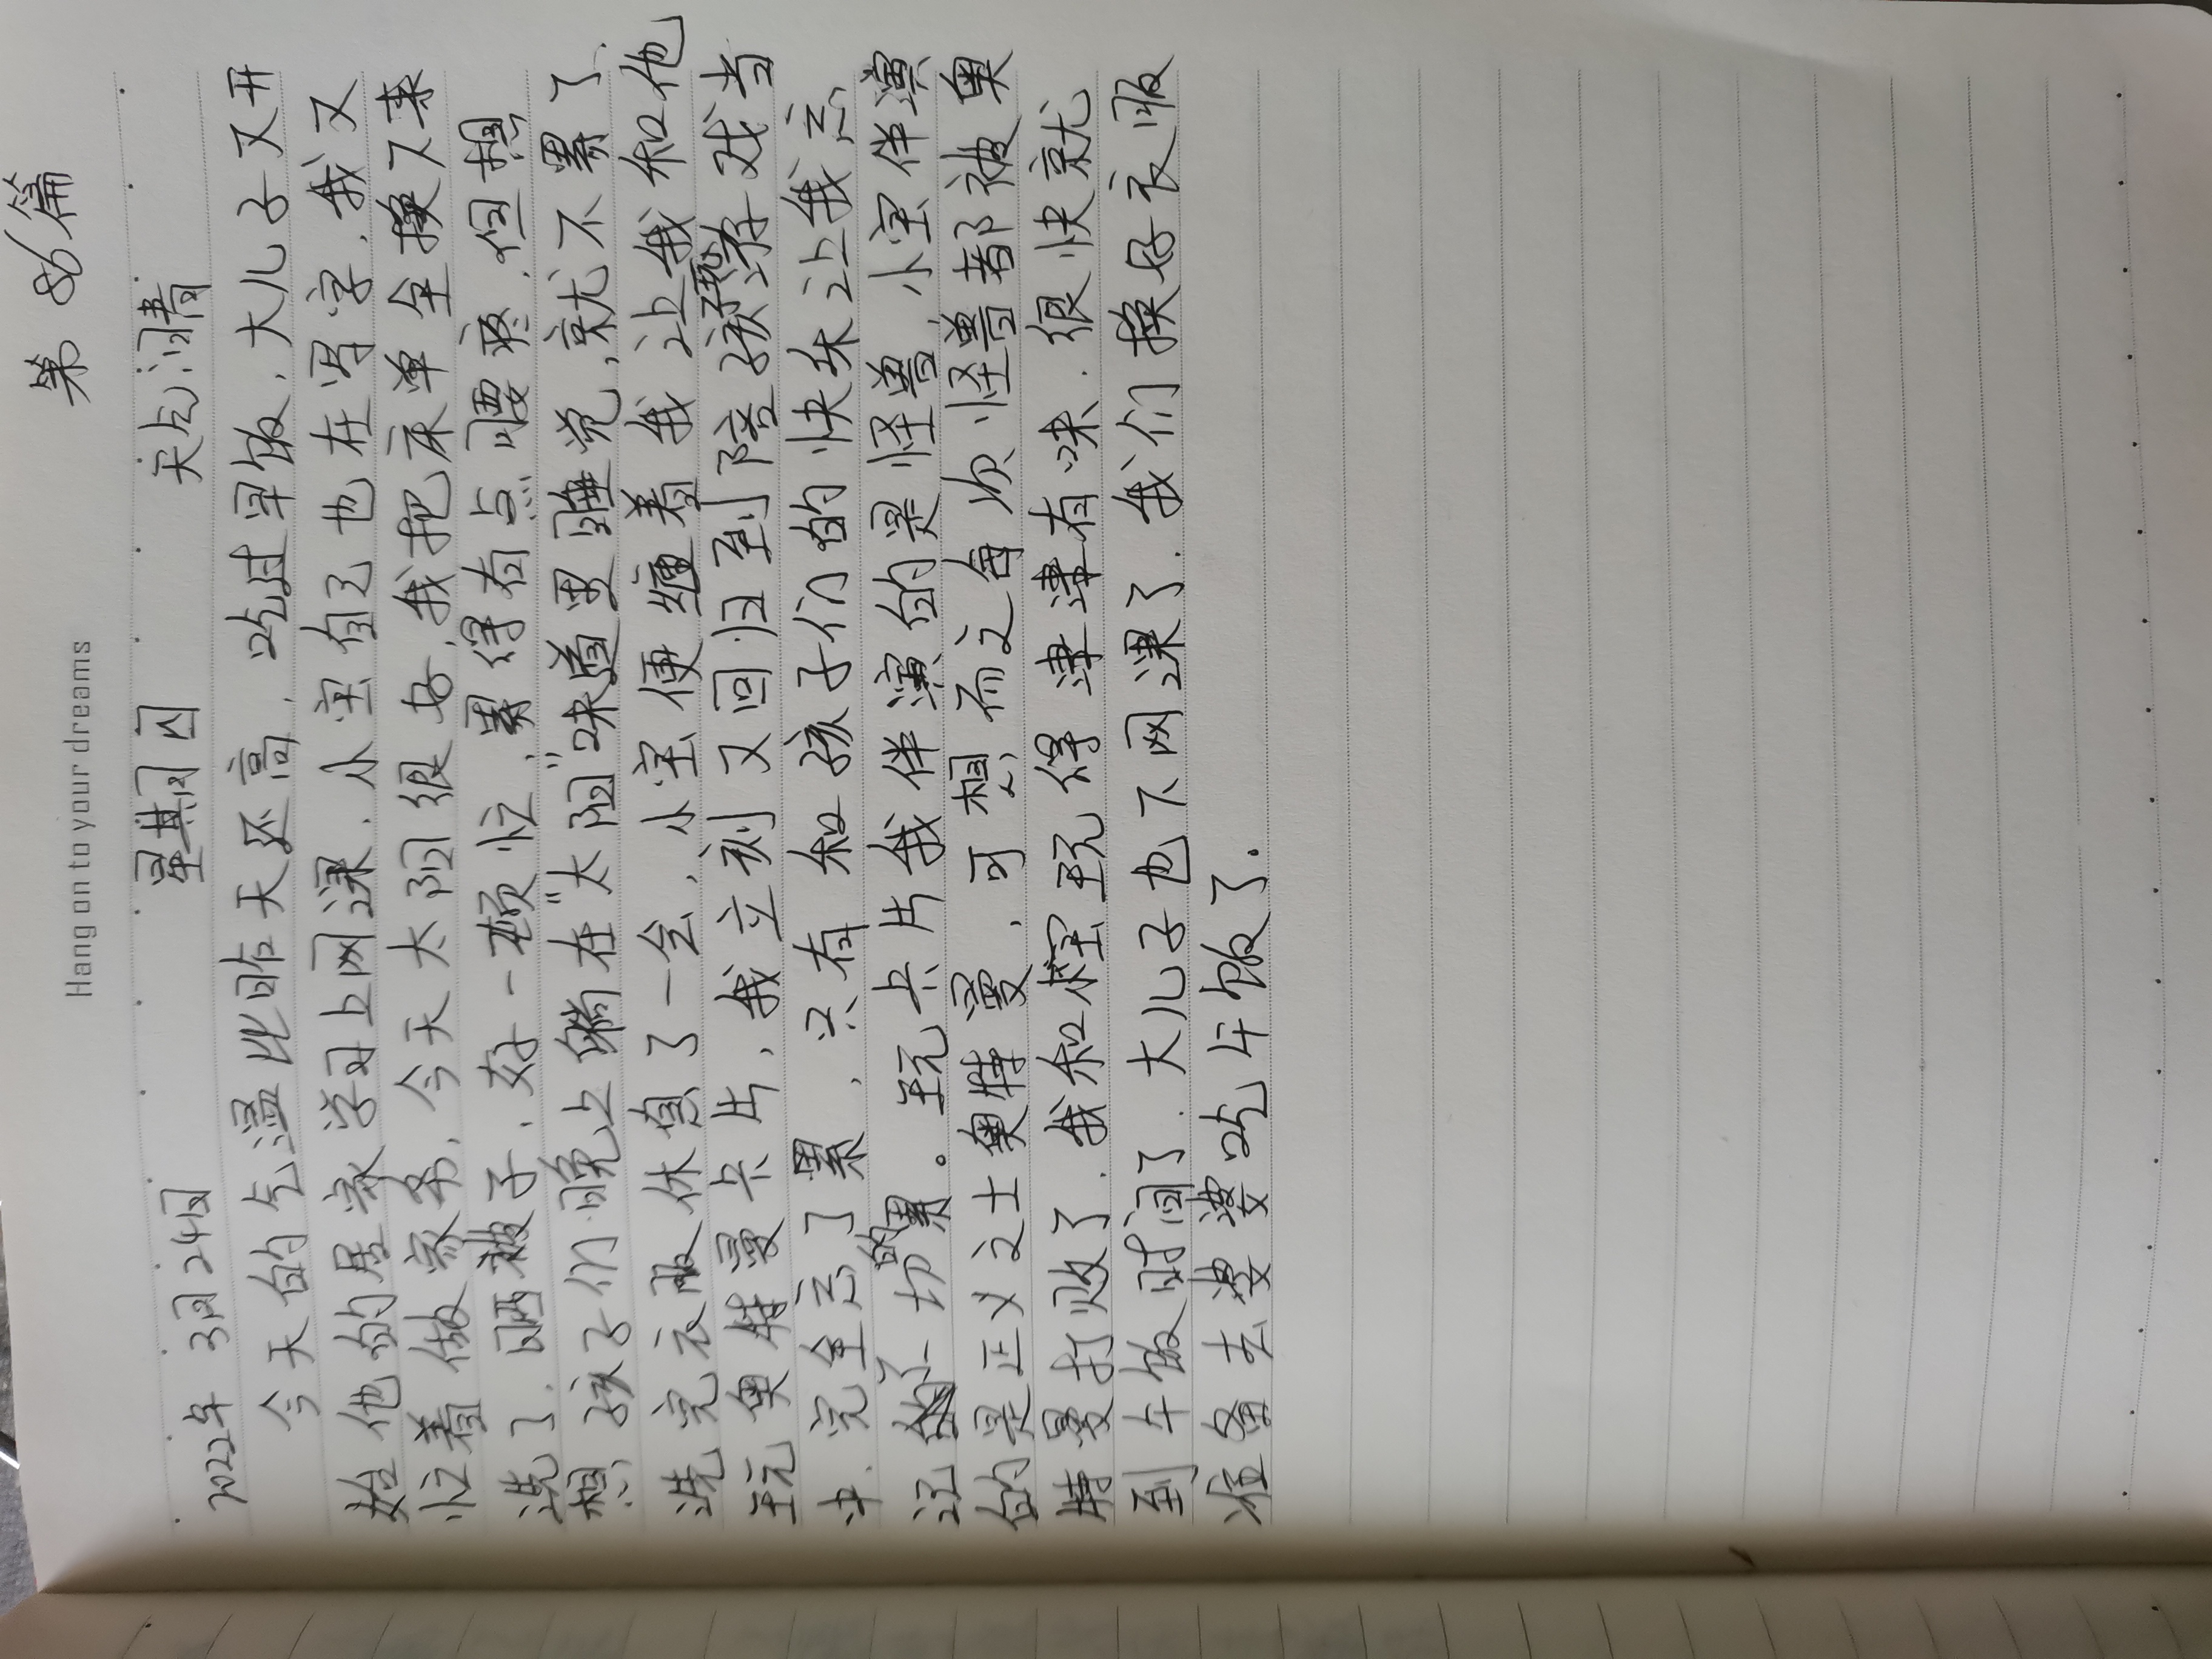 第86篇
Hang on to your dreams
2022年 3月24日 星期四 天气:晴
今天的气温比昨天还高，吃过早饭，大儿子又开
始他的居家学习上网课，小宝自己也在写字，我又
忙着做家务，今天太阳很好，我把床单全换下来
洗了，晒被子，好一顿忙，累得有点腰疼，但想
想，孩子们晚上躺在“太阳”味道里睡觉，就不累了、
洗完衣服休息了一会，小宝便缠着我让我和他
玩奥特曼卡片，我立刻又回归到陪孩子玩游戏当
中，完全忘了累，只有和孩子们的快乐让我忘
记了一切的累。玩卡片我伴演的是怪兽，小宝伴演
的是正义之士奥特曼，可想而之每次怪兽都被奥
特曼打败了，我和小宝玩得津津有味，很快就
到午饭时间了，大儿子也下网课了，我们换好衣服
准备去婆婆吃午饭了.